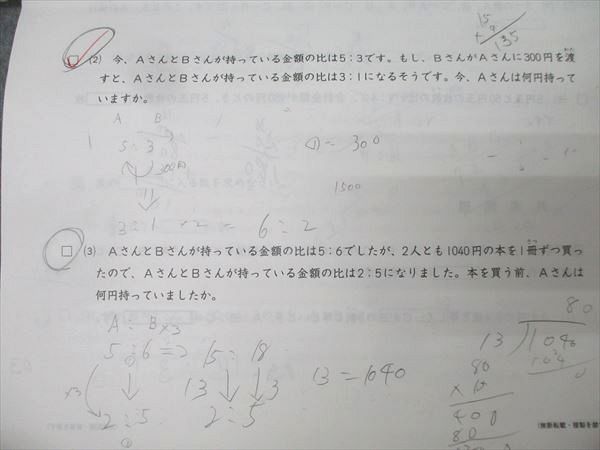 15
× 9
135
(2) 今、AさんとBさんが持っている金額の比は5:3です。もし、BさんがAさんに300円を渡
すと、AさんとBさんが持っている金額の比は3:1になるそうです。今、Aさんは何円持って
いますか。
A B
5:3
300円
①=300
1500
3:1
6:2
(3) AさんとBさんが持っている金額の比は5:6でしたが、2人とも1040円の本を1冊ずつ買っ
たので、AさんとBさんが持っている金額の比は2:5になりました。本を買う前、Aさんは
何円持っていましたか。
A:B
×3
5:6
15:18
×3
13
13
2:5
2:5
13=1040
80
13)1040
104
0
80
×15
400
80
(無断転載・複製を